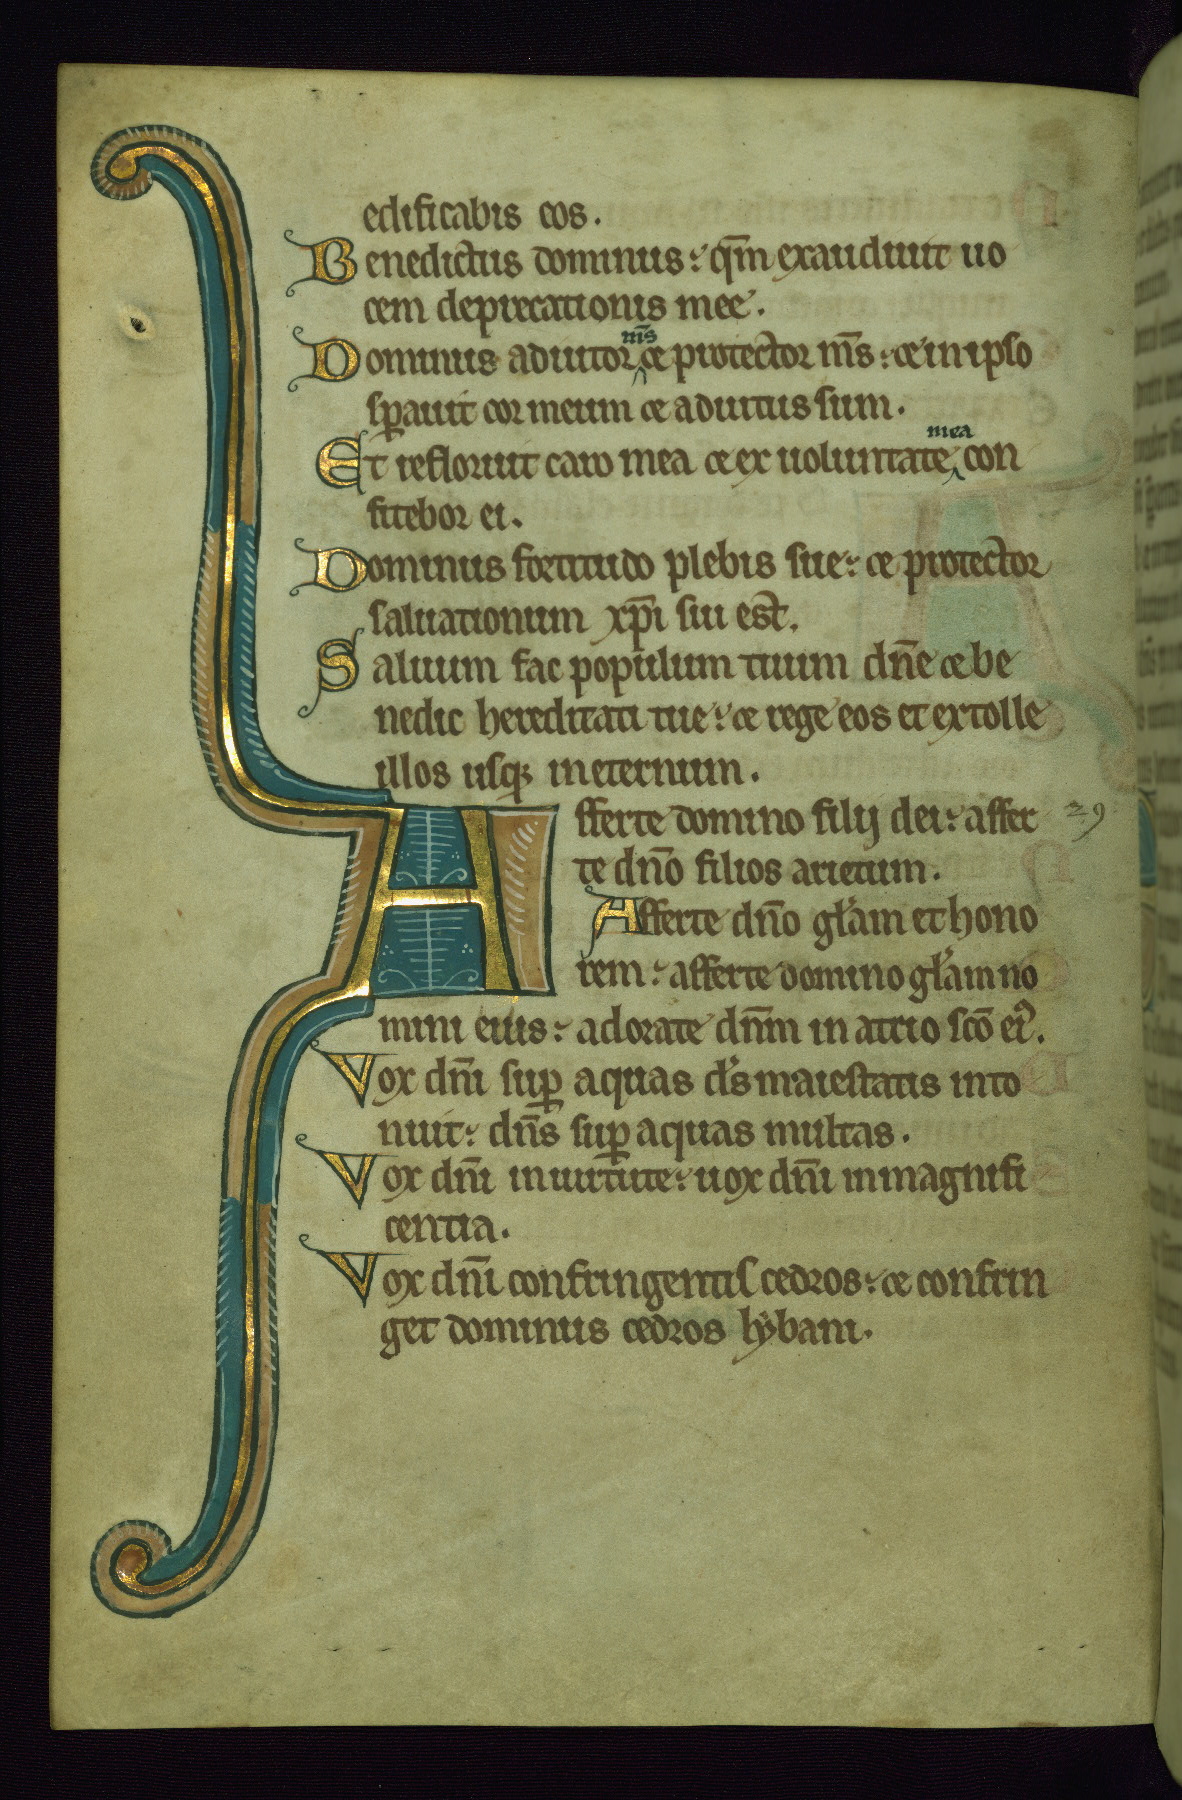 edificabis eos.
Benedictus dominus: qm̄ exaudiuit uo
cem deprecationis mee.
Dominus adiutor mūs et protector mūs: et in ipso
sꝑauit cor meum et adiutus sum.
Et refloruit caro mea et ex uoluntate mea con
fitebor ei.
Dominus fortitudo plebis sue: et protector
saluationum xp̄i sui est.
Saluum fac populum tuum dn̄e et be
nedic hereditati tue: et rege eos et extolle
illos usqꝫ in eternum.
Afferte domino filij dei: affer 29
te dn̄o filios arietum.
Afferte dn̄o gl̄am et hono
rem: afferte domino gl̄am no
mini eius: adorate dn̄m in atrio sc̄o ei᾽.
Vox dn̄i suꝑ aquas d's maiestatis into
nuit: dn̄s suꝑ aquas multas.
Vox dn̄i in uirtute: uox dn̄i in magnifi
centia.
Vox dn̄i confringentis cedros: et confrin
get dominus cedros lẏbani.